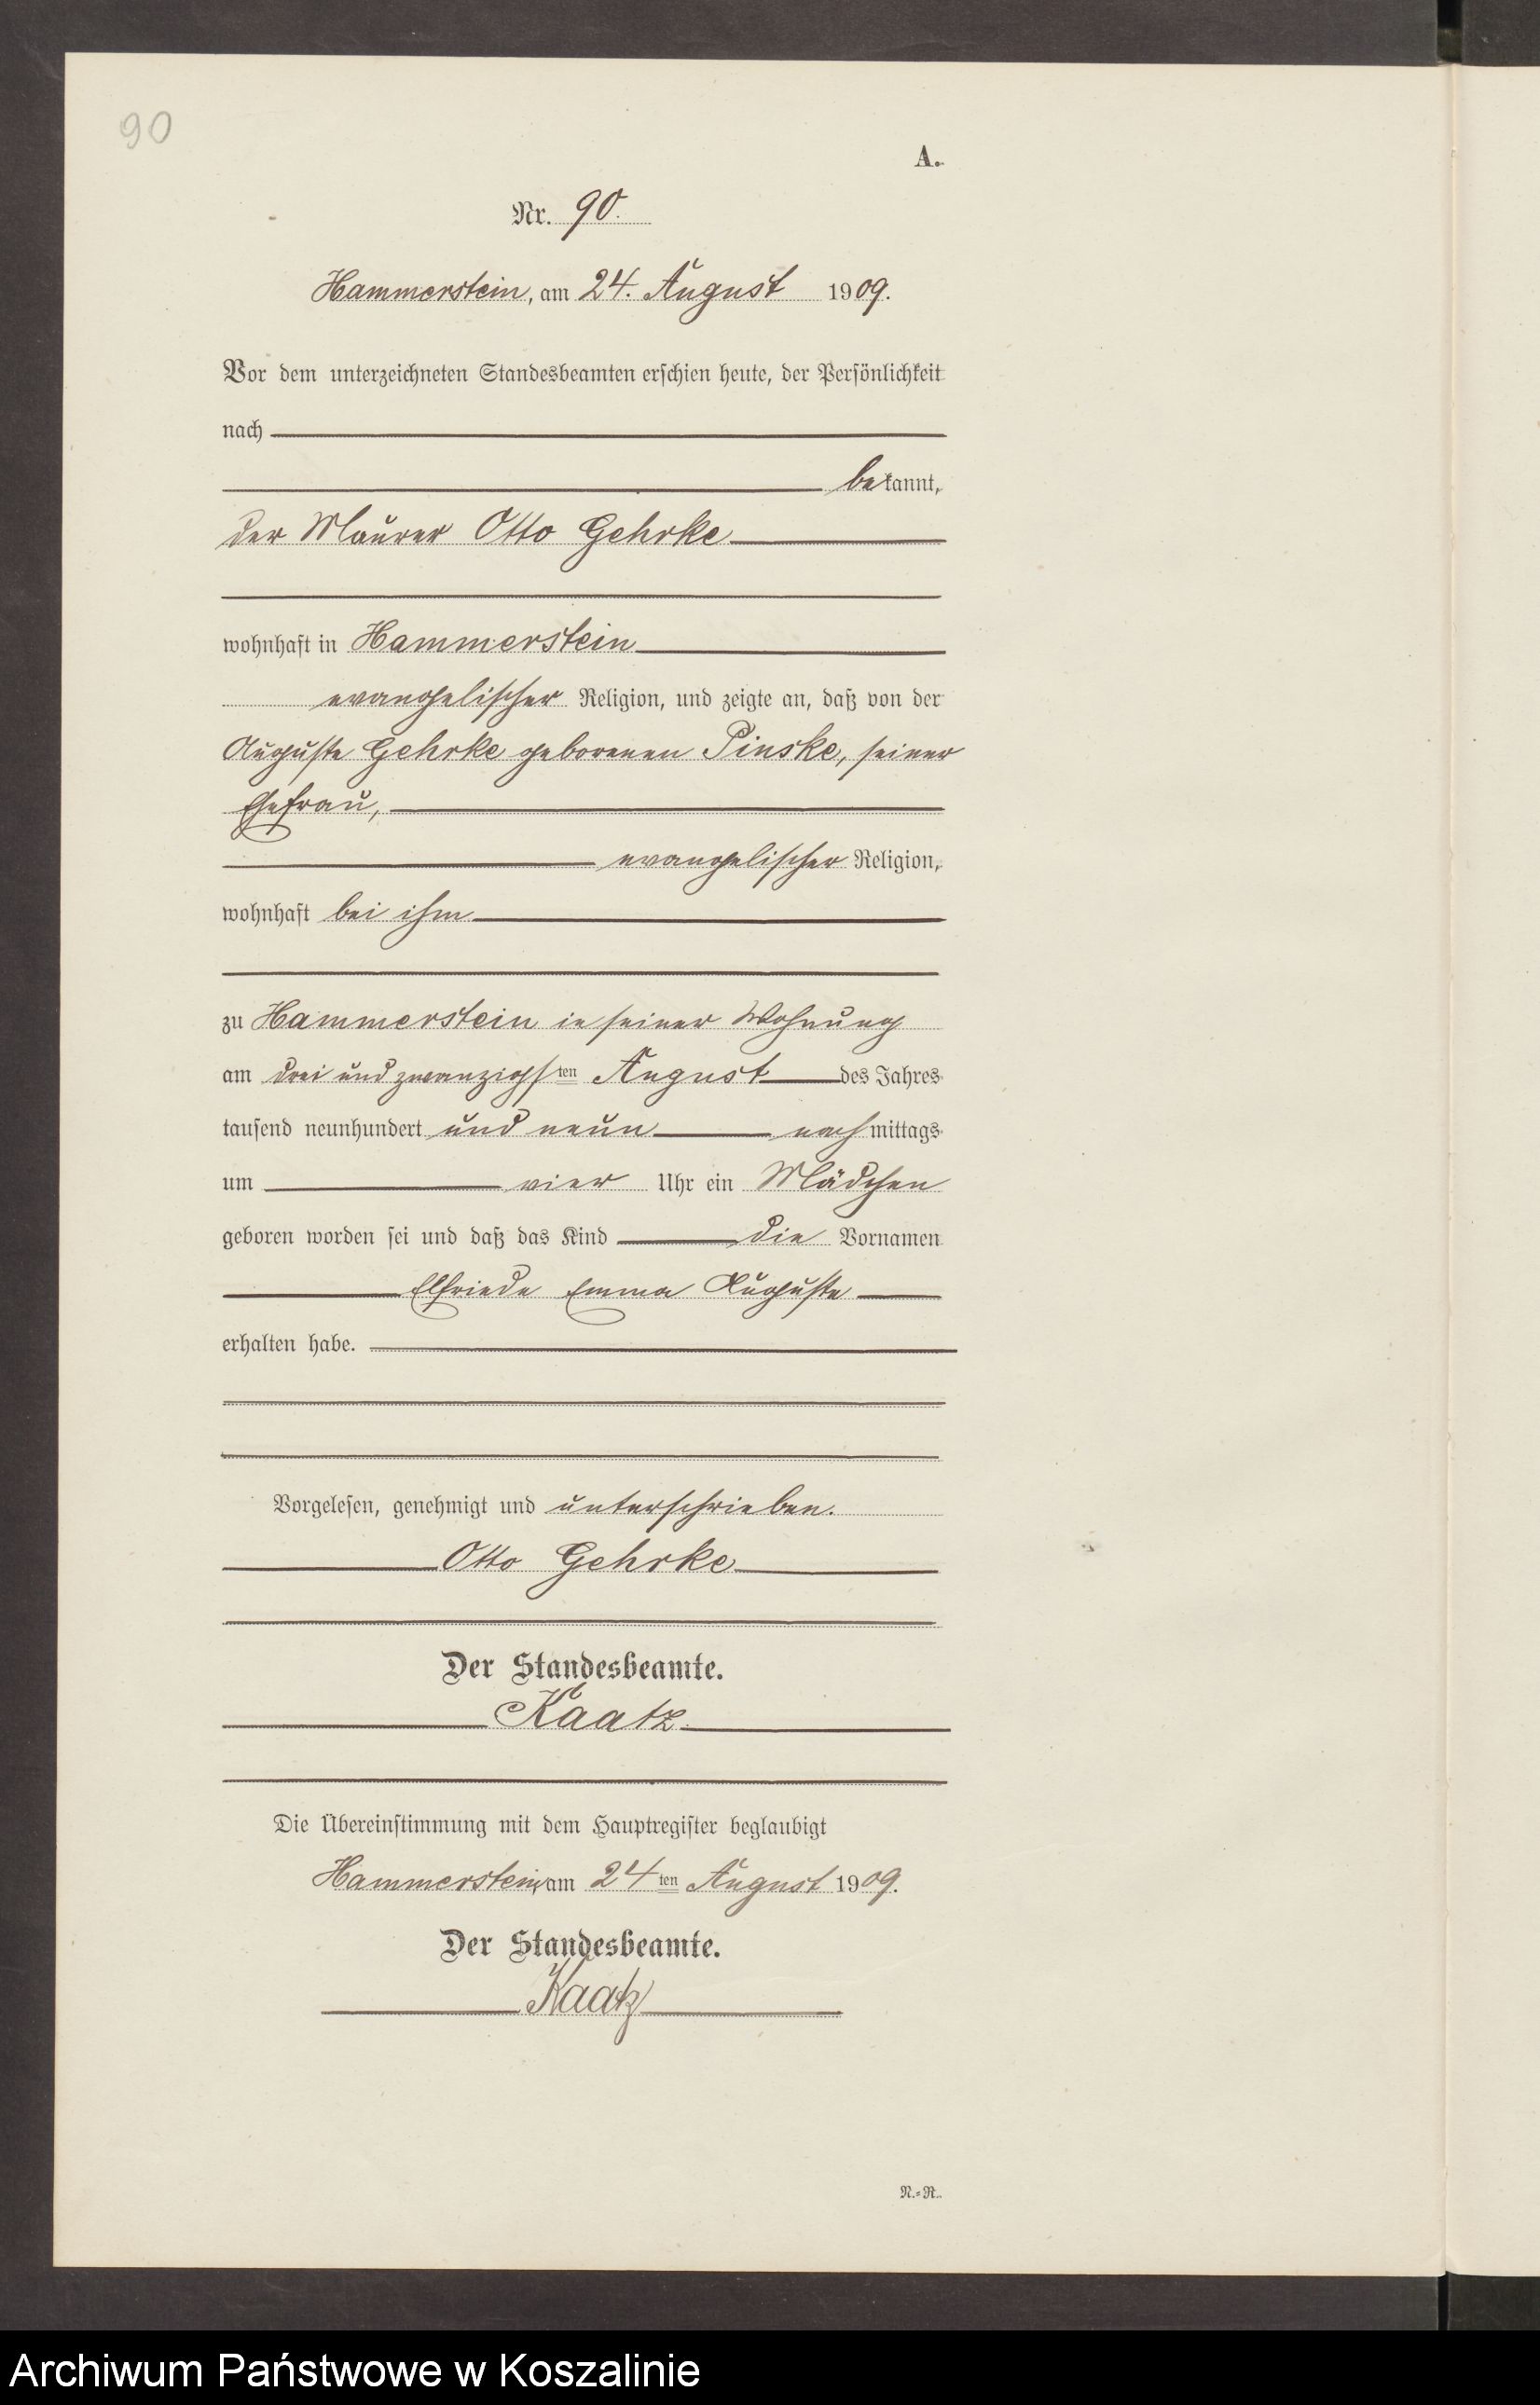 90
A.
Nr. 90.
Hammerstein, am 24. August 1909.
Vor dem unterzeichneten Standesbeamten erschien heute, der Persönlichkeit
nach
bekannt,
der Maurer Otto Gehrke
wohnhaft in Hammerstein
evangelischer Religion, und zeigte an, daß von der
Auguste Gehrke geborenen Pinske, seiner
Ehefrau,
evangelischer Religion,
wohnhaft bei ihm
zu Hammerstein in seiner Wohnung
am drei und zwanzigsten August des Jahres
tausend neunhundert und neun nachmittags
um vier Uhr ein Mädchen
geboren worden sei und daß das Kind die Vornamen
Elfriede Emma Auguste
erhalten habe.
Vorgelesen, genehmigt und unterschrieben.
Otto Gehrke
Der Standesbeamte.
Kaatz
Die Übereinstimmung mit dem Hauptregister beglaubigt
Hammerstein, am 24ten August 1909.
Der Standesbeamte.
Kaatz
N.=R.
Archiwum Państwowe w Koszalinie